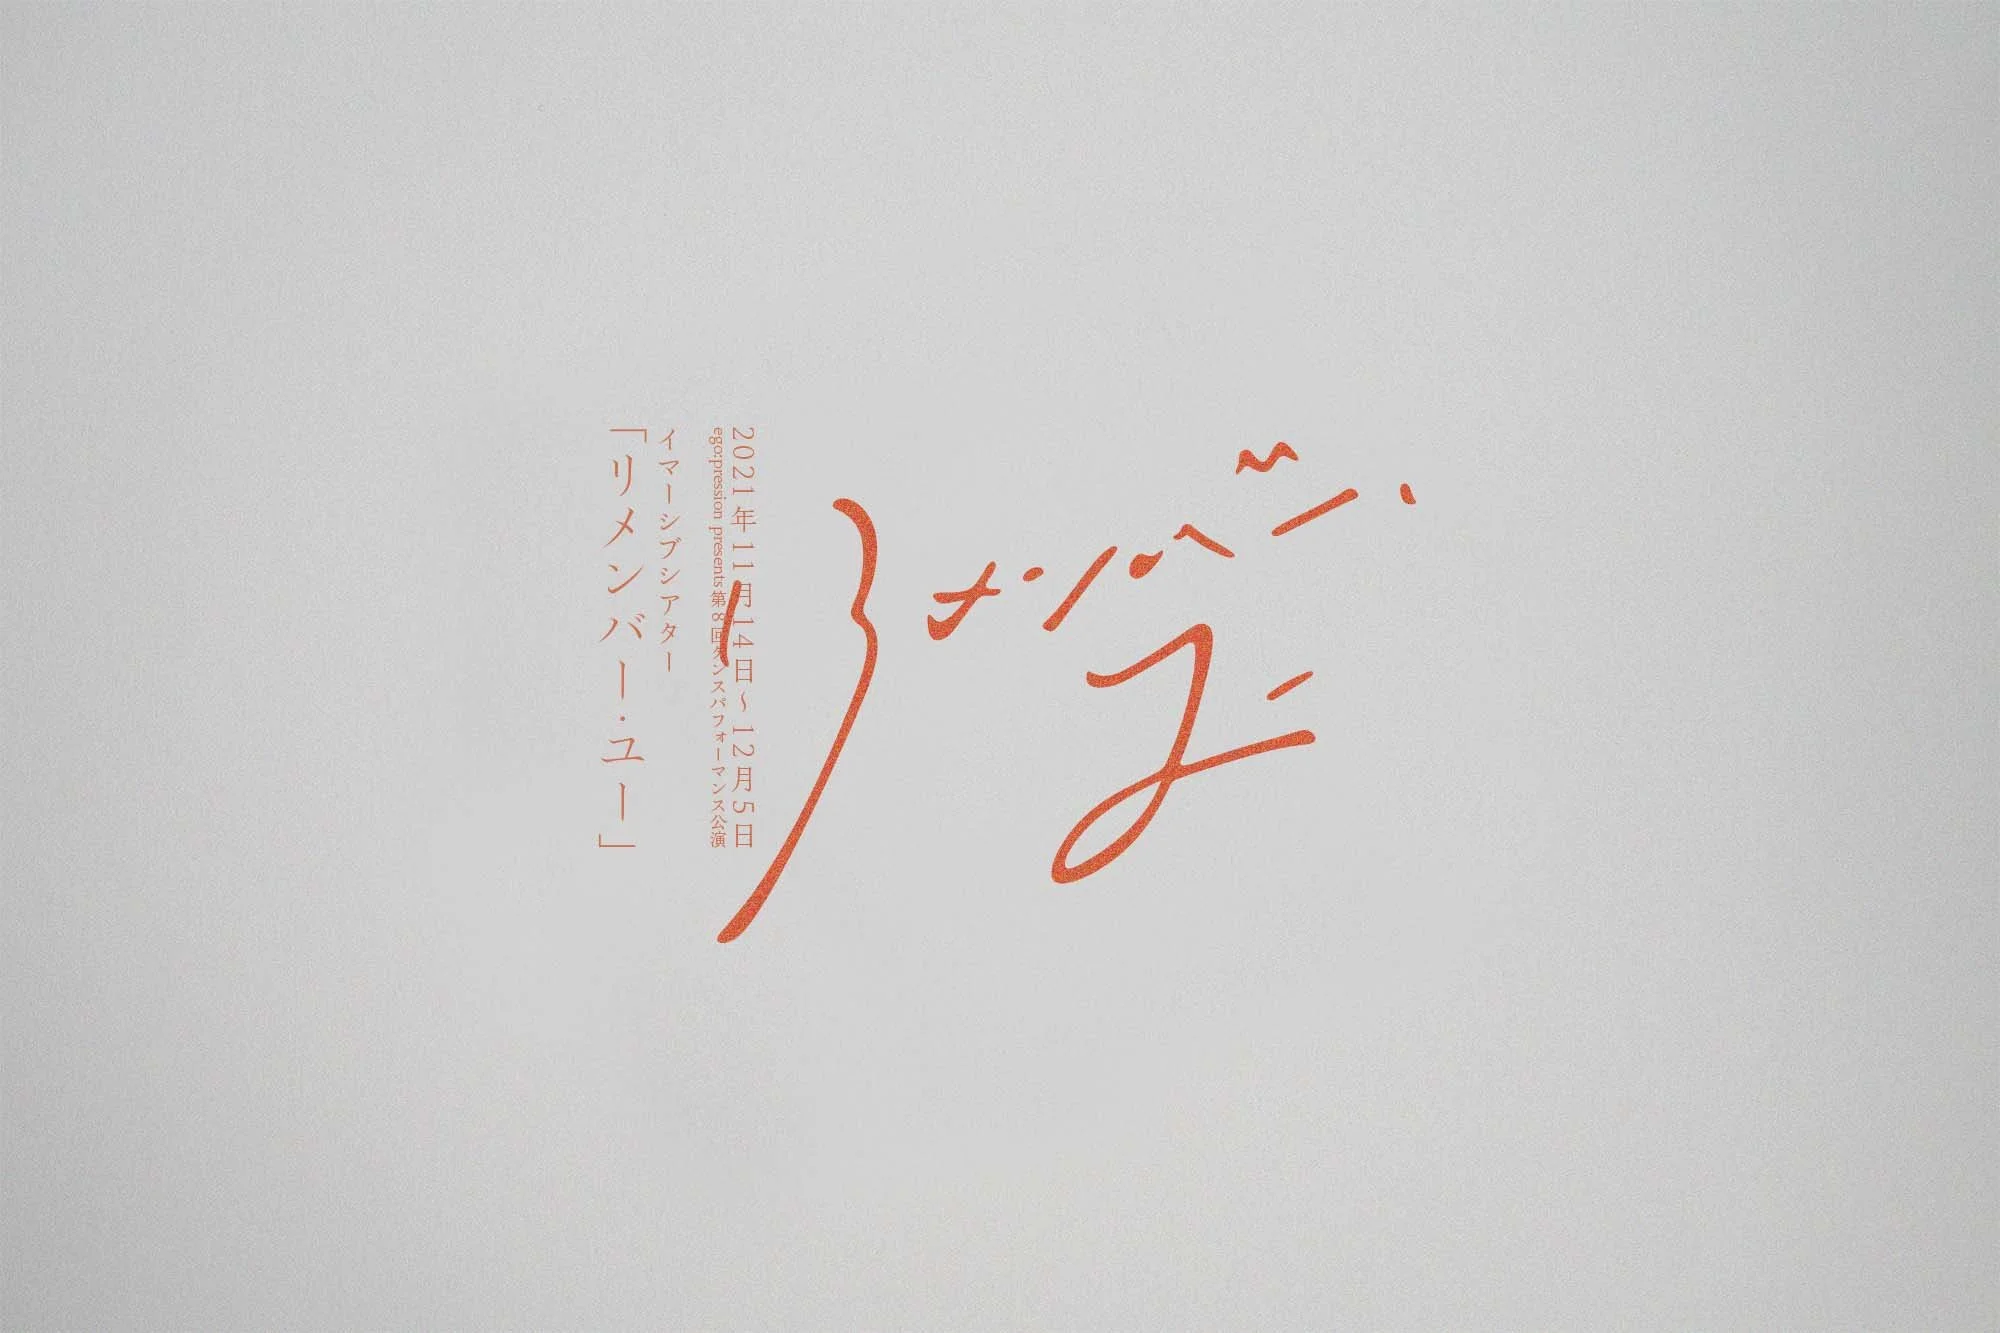 リメンバー・ユー
2021年11月14日～12月5日
ego:pression presents第8回ダンスパフォーマンス公演
イマーシブシアター
「リメンバー・ユー」